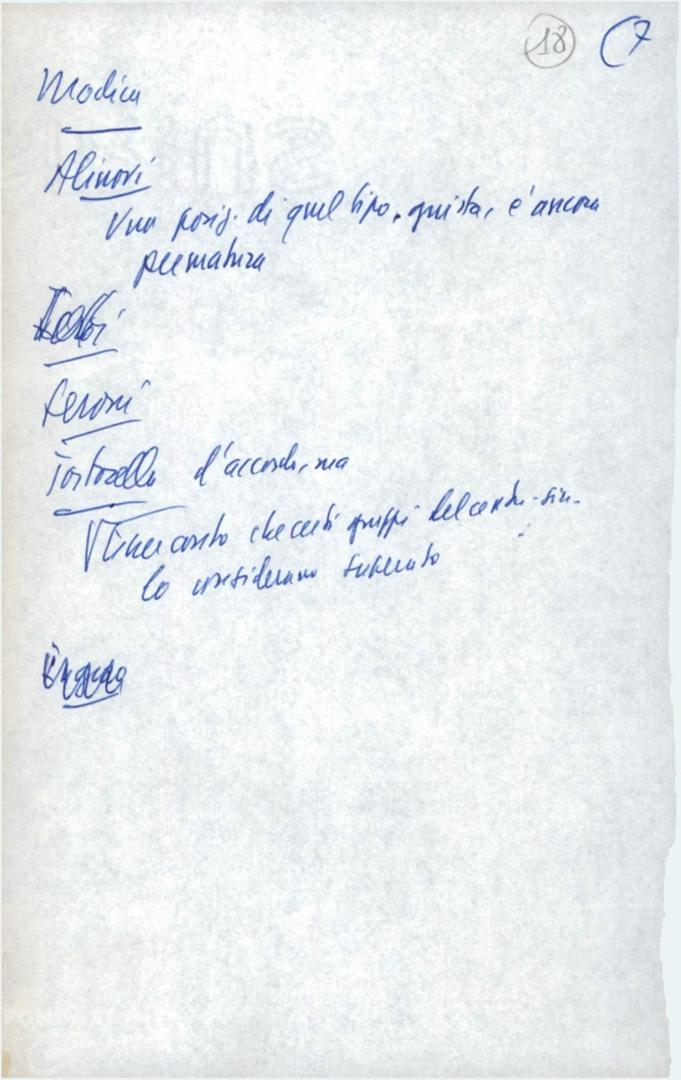 18 7
Modica
Alinovi
Una posiz. di quel tipo, giusta, è ancora
prematura
Peroni
Tortorella d'accordo, ma
V che certi gruppi del centro-sin.
lo considerano superato